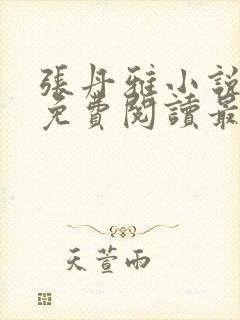 張丹雅小說
免費閱讀最
天萱雨